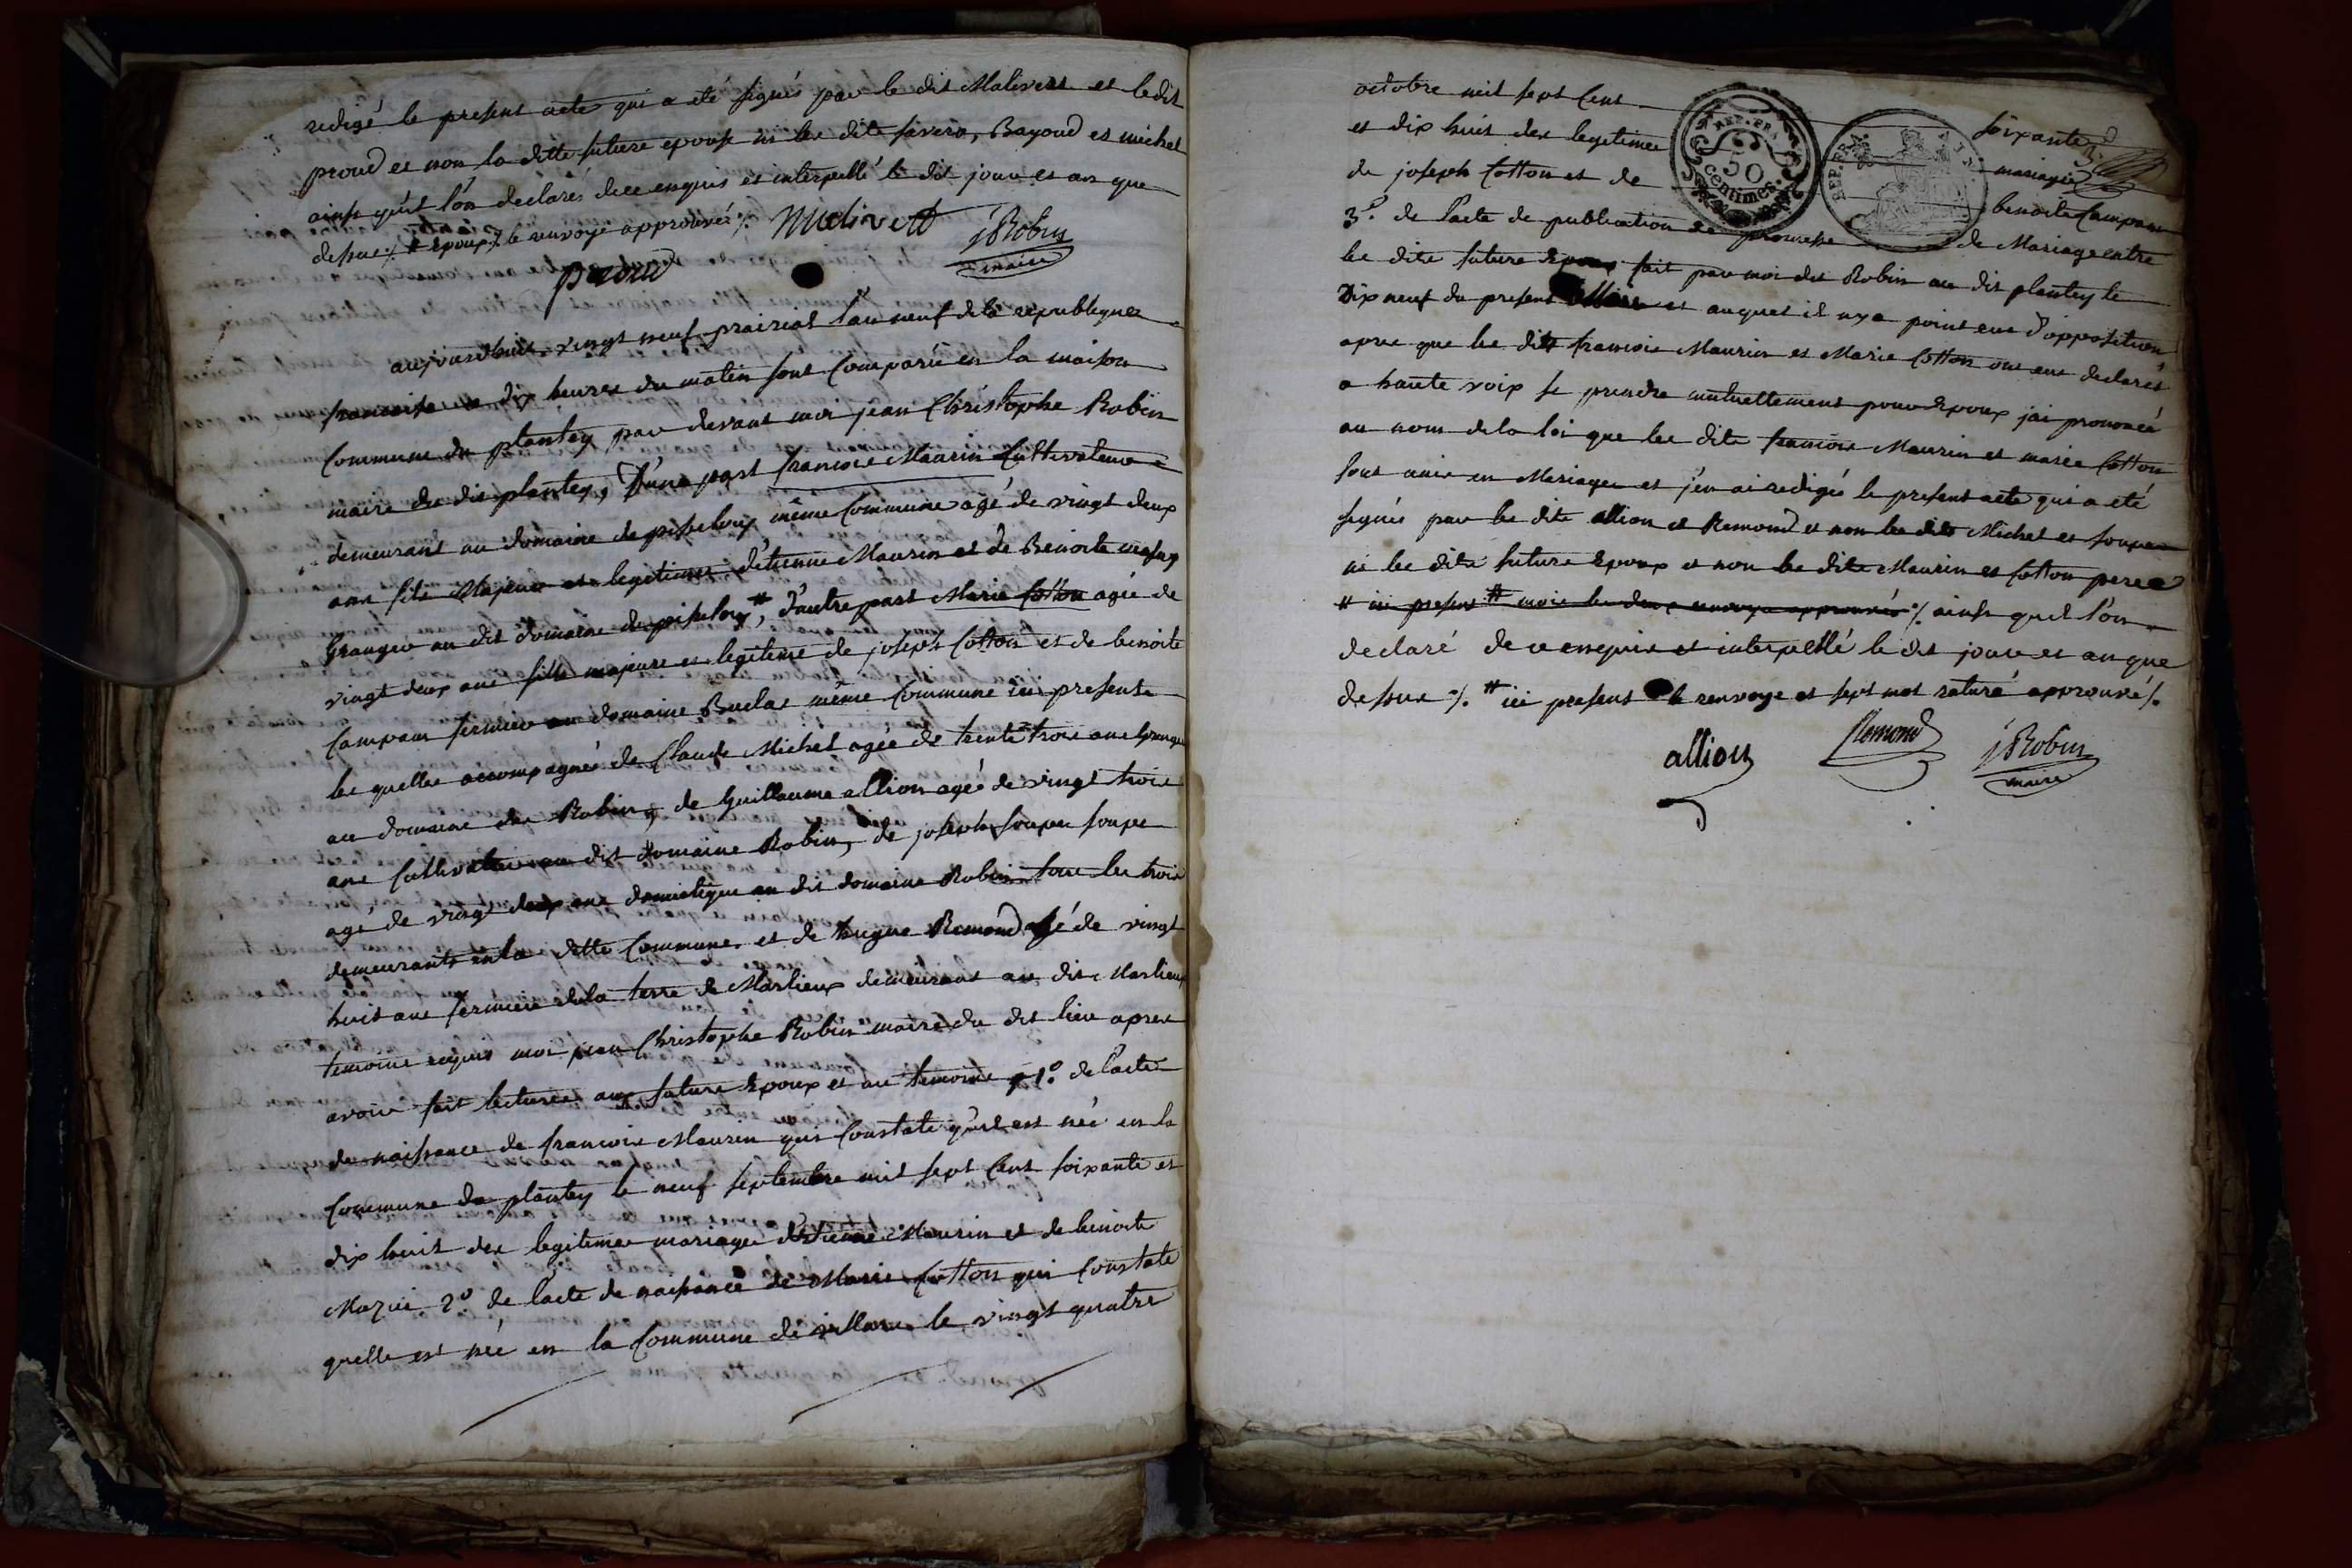 redigé le present acte qui a eté signés par le dit Malivert et ledit
proud et non la ditte future epouse ni les dits savera, Bayoud et michel
ainsi qu'il l'on declarés de ce enquis et interpellé le dit jour et an que
dessus ⁒ # Epoux ⁒ le renvoye approuvé ⁒ Malivert jRobin
proud maire
aujourdhuis vingt neuf prairial l'an neuf dela republique
francoise a dix heures du matin sont Comparu en la maison
Commune du plantey par devant moi jean Christophe Robin
maire du dit plantey, D'une part francois Maurin Cultivateur
demeurant au domaine de pisseloup même Commune agé de vingt deux
ans fils Majeur et legitime d'etienne Maurin et de Benoite
Granger au dit domaine de piseloup #, d'autre part Marie Cotton agée de
vingt deux ans fille majeure et legitime de joseph Cotton et de benoite
Campan fermier au domaine Buclas même Commune ici presents
les quelles accompagnée de Claude Michel agée de trente trois ans Granger
au domaine des Robin, de Guillaume allion agé de vingt trois
ans Cultivateur au dit domaine Robin, de joseph soupe soupe
agé de vingt deux ans domestique au dit domaine Robin tous les trois
demeurants enla ditte Commune et de hugue Remond agé de vingt
huit ans fermier dela terre de Marlieux demeurant au dit Marlieux
temoins requis moi jean Christophe Robin maire du dit lieu apres
avoir fait lecture aux futurs Epoux et au temoins 1º. de l'acte
de naissance de francois Maurin qui Constate qu'il est née en la
Commune du plantey le neuf septembre mil sept Cent soixante et
dix huit des legitimes mariage d'Etienne Maurin et de benoite
Mazui 2º. de l'acte de naissance de Marie Cotton qui Constate
quelle est née en la Commune de villars le vingt quatre
octobre mil sept Cent soixante
et dix huit des legitimes mariages
de joseph Cotton et de benoite Campan
REP. FRA. 50 centimes.
REP. FRA.
3º. de l'acte de publication de promesse de Mariage entre
les dits futurs Epoux fait par moi dit Robin au dit plantey le
Dix neuf du present et auquel il nya point eue d'opposition
apres que les dits francois Maurin et Marie Cotton ont eue declarés
a haute voix se prendre mutuellement pour Epoux jai prononcé
au nom dela loi que les dits francois Maurin et marie Cotton
sont unis en Mariages et j'en ai redigés le present acte qui a eté
signés par les dits allion et Remond et non les dits Michel et soupe
ni les dits futurs Epoux et non les dits Maurin et Cotton peres
# ici presens # mois les deux renvoye approuvés ⁒ ainsi quil l'on
declaré de ce enquis et interpellé le dit jour et an que
dessus ⁒. # ici presens le renvoye et sept mot raturé approuvé ⁒.
allion Remond jRobin
maire